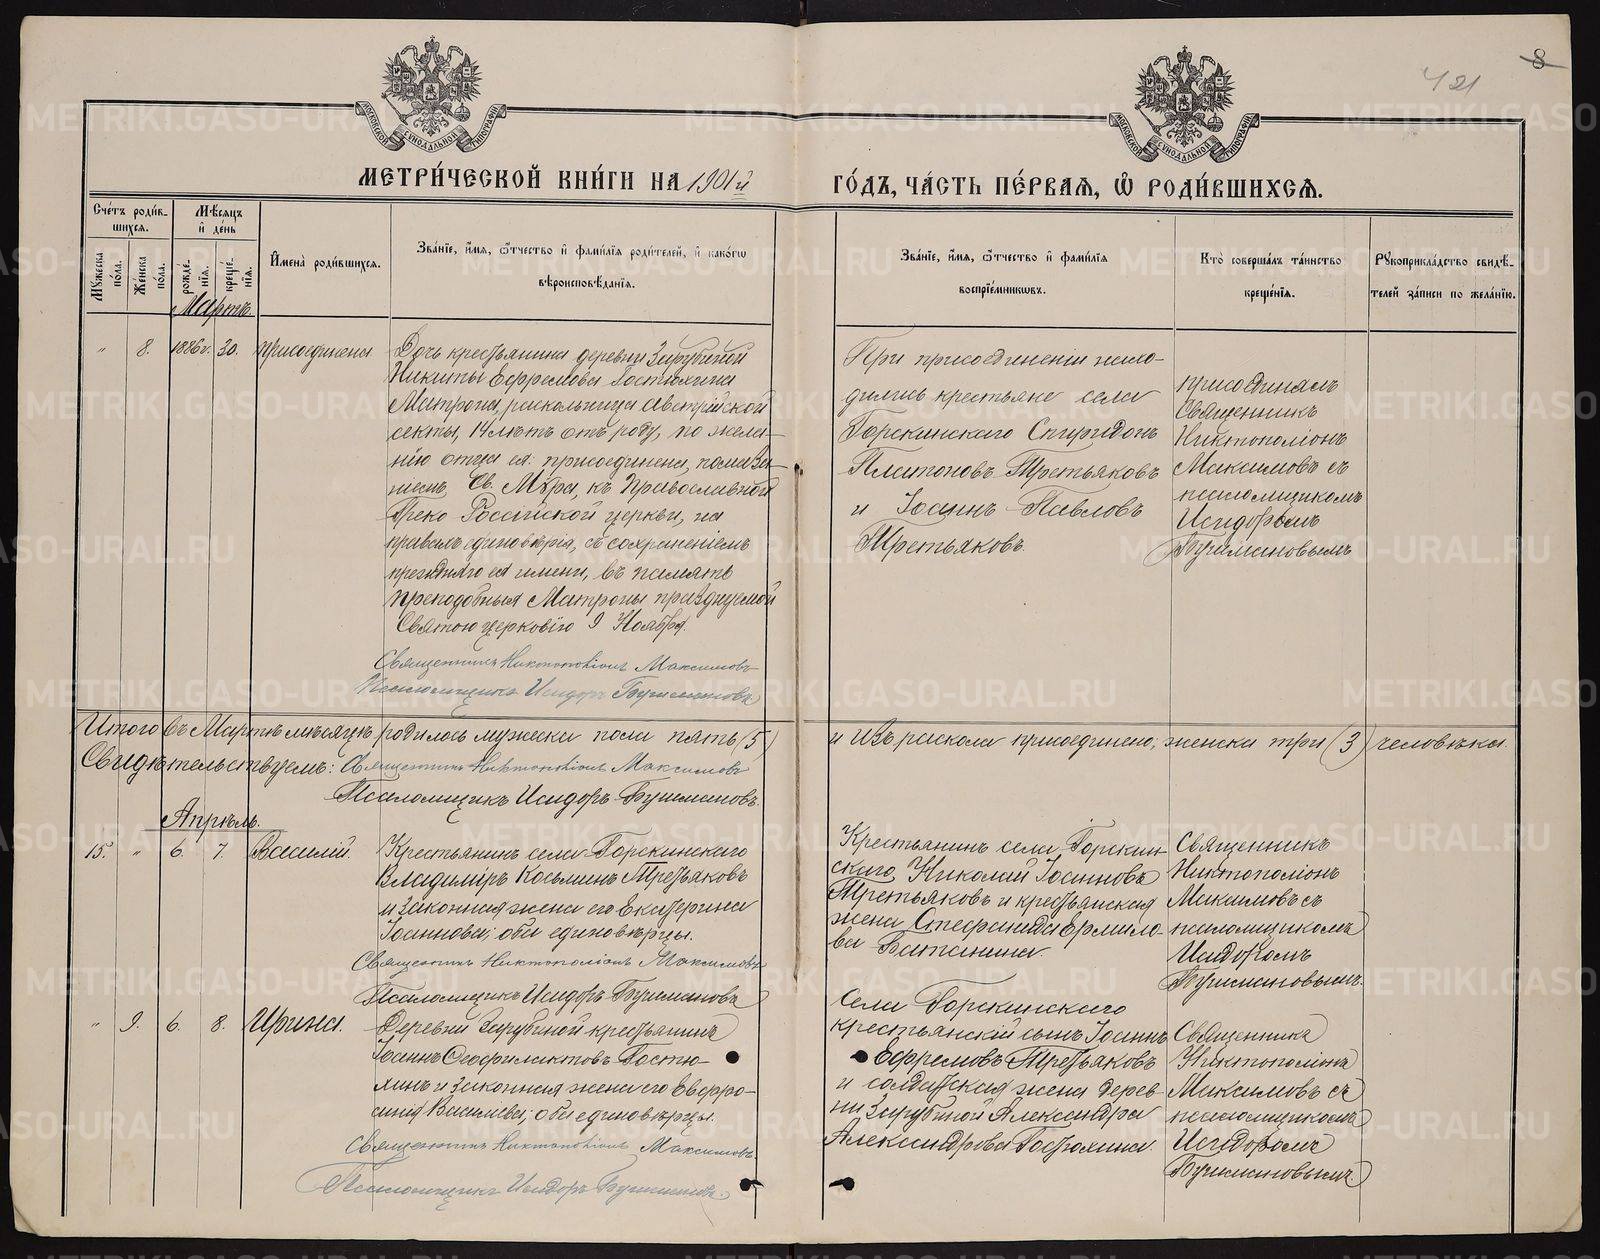 421
8
МОСКОВСКОЙ СѴНОДАЛЬНОЙ ТИПОГРАФІИ
МОСКОВСКОЙ СѴНОДАЛЬНОЙ ТИПОГРАФІИ
МЕТРИ́ЧЕСКОЙ КНИ́ГИ НА 1901й
ГО́ДЪ, ЧА́СТЬ ПЕ́РВАѦ, Ѡ҆ РОДИ́ВШИХСѦ.
Сче́тъ роди́в-
шихся.
Мѣ́сяцъ
и҆ де́нь
Му́жеска
по́ла.
Же́нска
по́ла.
рожде́-
нїя.
креще́-
нїя.
И҆мена̀ роди́вшихся.
Зва́нїе, и҆́мя, ѻ҆́тчество и҆ фами́лїя роди́телей, и҆ како́гѡ
вѣроисповѣ́данїя.
Зва́нїе, и҆́мя, ѻ҆́тчество и҆ фами́лїя
воспрїе́мникѡвъ.
Кто̀ соверша́лъ та́инство
креще́нїя.
Рукоприкла́дство свидѣ́-
телей за́писи по жела́нїю.
Мартъ.
" 8. 1886 г. 30. присоединена
Дочь крестьянина деревни Зырубиной
Никиты Ефремова Гостюхина
Матрона, раскольница австрійской
секты, 14 лѣтъ отъ роду, по жела-
нію отца ея: присоединена, помаза-
ніемъ Св. Мѵра, къ Православной
Греко Россійской церкви, на
правилъ единовѣрія, съ сохраненіемъ
прежняго ея имени, въ память
преподобныя Матроны празднуемой
Святою церковію 9 Ноября.
Священникъ Никтополіонъ Максимовъ
Псаломщикъ Исидоръ Бушмановъ
При присоединеніи нахо-
дились крестьяне села
Горскинскаго Спиридонъ
Платоновъ Третьяковъ
и Іоаннъ Павловъ
Третьяковъ.
присоединялъ
Священникъ
Никтополіонъ
Максимовъ съ
псаломщикомъ
Исидоромъ
Бушмановымъ
Итого въ Мартѣ мѣсяцѣ родилось мужеска пола пять (5)
и изъ раскола присоединено; женска три (3) человѣка.
Свидѣтельствуемъ: Священникъ Никтополіонъ Максимовъ
Псаломщикъ Исидоръ Бушмановъ.
Апрѣль.
15. " 6. 7. Василій.
Крестьянинъ села Горскинскаго
Владиміръ Косьминъ Третьяковъ
и законная жена его Екатерина
Іоаннова; оба единовѣрцы.
Священникъ Никтополіонъ Максимовъ
Псаломщикъ Исидоръ Бушмановъ
Крестьянинъ села Горскин-
скаго Николай Іоанновъ
Третьяковъ и крестьянская
жена Стефанида Ермило-
ва Батанина.
Священникъ
Никтополіонъ
Максимовъ съ
псаломщикомъ
Исидоромъ
Бушмановымъ.
" 9. 6. 8. Ирина.
Деревни Зырубиной крестьянинъ
Іоаннъ Феофилактовъ Гостю-
хинъ и законная жена его Евфро-
синія Васильева; оба единовѣрцы.
Священникъ Никтополіонъ Максимовъ.
Псаломщикъ Исидоръ Бушмановъ.
Села Горскинскаго
крестьянскій сынъ Іоаннъ
Ефремовъ Третьяковъ
и солдатская жена дерев-
ни Зырубиной Александра
Александрова Гостюхина.
Священникъ
Никтополіонъ
Максимовъ съ
псаломщикомъ
Исидоромъ
Бушмановымъ.
METRIKI.GASO-URAL.RU